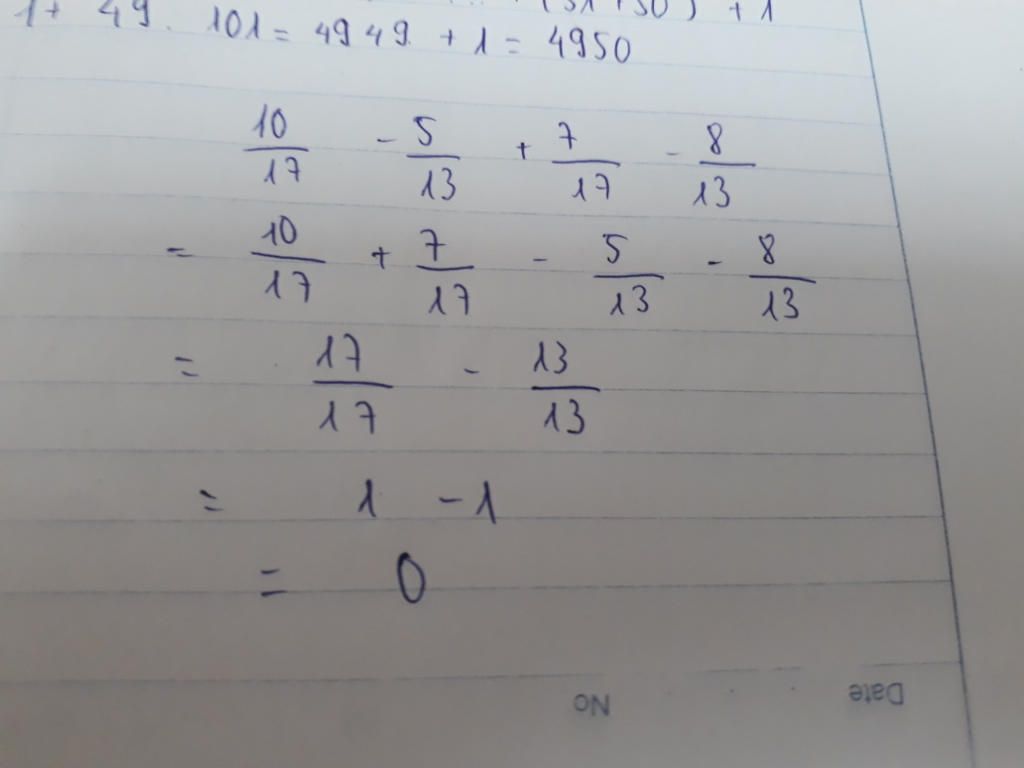 (51+50) + 1
1+ 49. 101 = 4949 + 1 = 4950
10/17 - 5/13 + 7/17 - 8/13
= 10/17 + 7/17 - 5/13 - 8/13
= 17/17 - 13/13
= 1 - 1
= 0
No Date